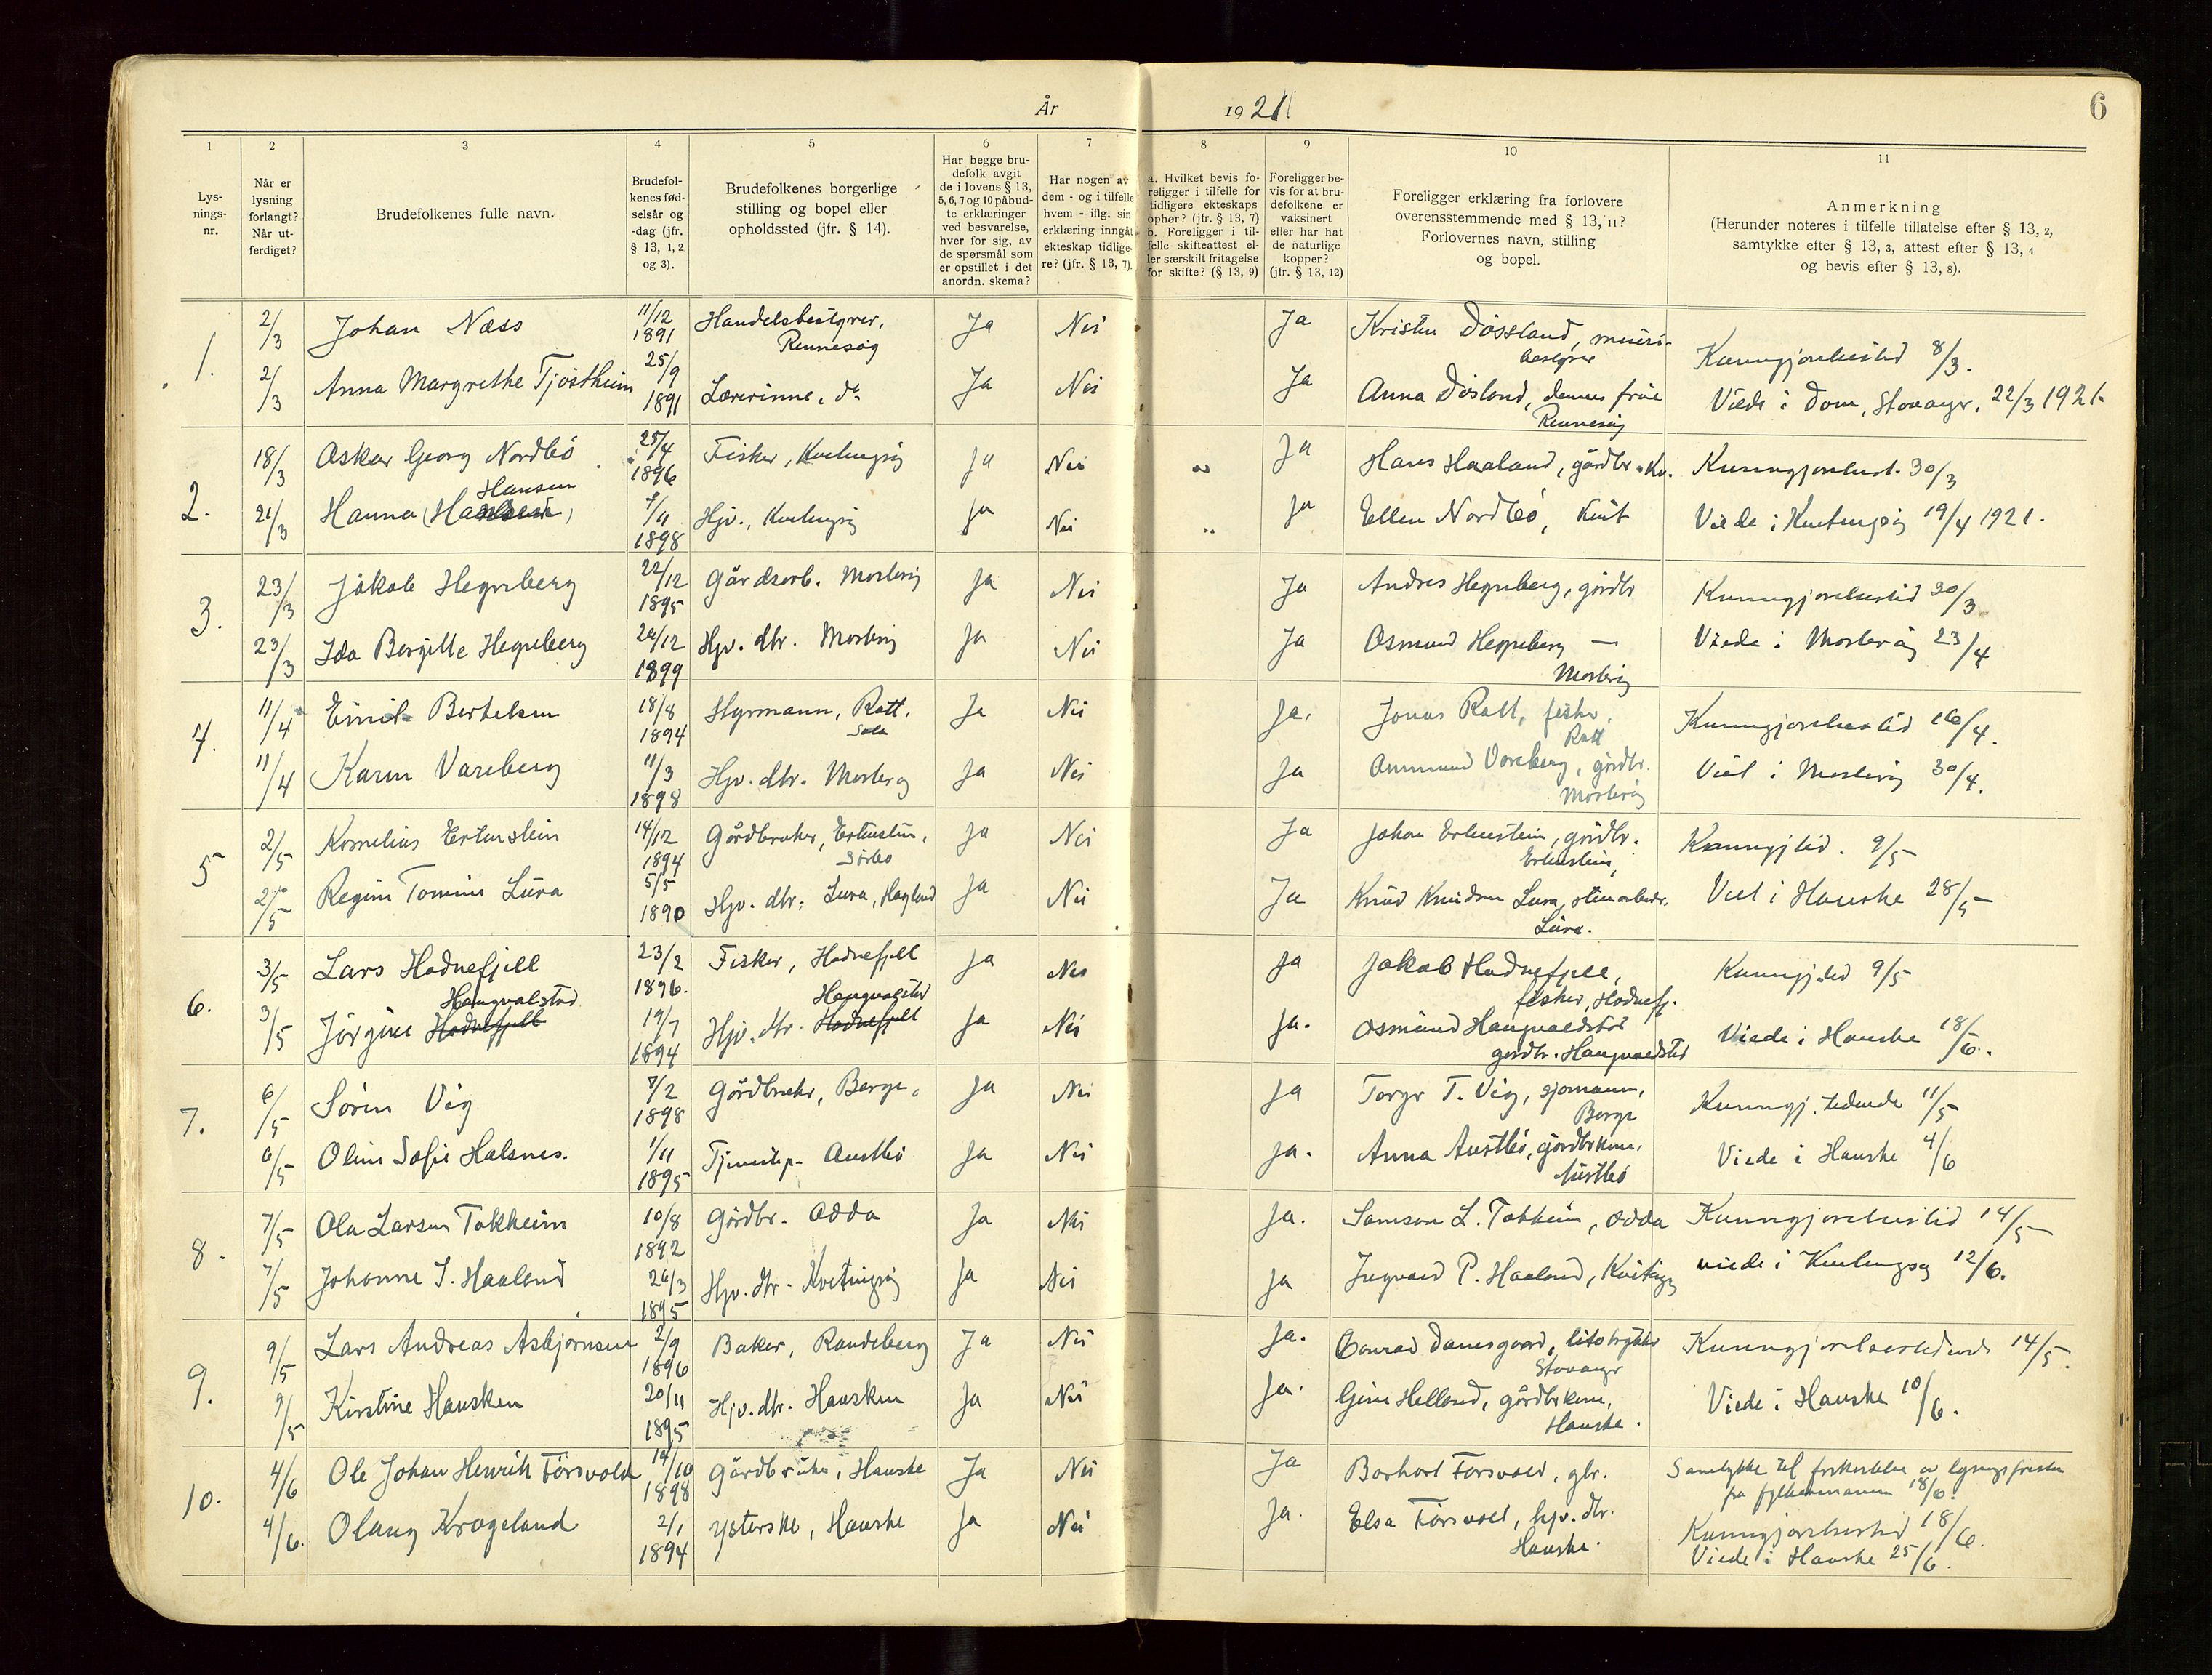 År 1921
6
1
2
3
4
5
6
7
8
9
10
11
Lys-
nings-
nr.
Når er
lysning
forlangt?
Når ut-
ferdiget?
Brudefolkenes fulle navn.
Brudefol-
kenes fød-
selsår og
-dag (jfr.
§ 13, 1, 2
og 3).
Brudefolkenes borgerlige
stilling og bopel eller
opholdssted (jfr. § 14).
Har begge bru-
defolk avgit
de i lovens § 13,
5, 6, 7 og 10 påbud-
te erklæringer
ved besvarelse,
hver for sig, av
de spørsmål som
er opstillet i det
anordn. skema?
Har nogen av
dem - og i tilfelle
hvem - iflg. sin
erklæring inngåt
ekteskap tidlige-
re? (jfr. § 13, 7).
a. Hvilket bevis fo-
religger i tilfelle for
tidligere ekteskaps
ophør? (jfr. § 13, 7)
b. Foreligger i til-
felle skifteattest el-
ler særskilt fritagelse
for skifte? (§ 13, 9)
Foreligger be-
vis for at bru-
defolkene er
vaksinert
eller har hat
de naturlige
kopper?
(jfr. § 13, 12)
Foreligger erklæring fra forlovere
overensstemmende med § 13, 11?
Forlovernes navn, stilling
og bopel.
Anmerkning
(Herunder noteres i tilfelle tillatelse efter § 13, 2,
samtykke efter § 13, 3, attest efter § 13, 4
og bevis efter § 13, 8).
1. 2/3 Johan Næss 11/12 1891 Handelsbestyrer, Rennesøy Ja Nei Ja Kristen Døssland, meieri-
bestyrer Kunngjørelsestid 8/3.
2/3 Anna Margrethe Tjøstheim 25/9 1891 Lærerinne, do Ja Nei Ja Anna Døsland, dennes frue
Rennesøy Viede i Dom, Stavanger, 22/3 1921.
2. 18/3 Oskar Georg Nordbø 25/4 1896 Fisker, Kvitingsøy Ja Nei " Ja Hans Haaland, gårdbr. Kv. Kunngjørelsest. 30/3
Hansen
21/3 Hanna 7/11 1898 Hjv., Kvitingsøy Ja Nei " Ja Ellen Nordbø, Kvit Viede i Kvitingsøy 19/4 1921.
3. 23/3 Jakob Hegreberg 22/12 1895 Gårdsarb. Mosterøy Ja Nei Ja Andres Hegreberg, gårdbr Kunngjørelsestid 30/3
23/3 Ida Bergitte Hegreberg 29/12 1899 Hjv. dtr. Mosterøy Ja Nei Ja Osmund Hegreberg —
Mosterøy Viede i Mosterøy 23/4
4. 11/4 Emil Bertelsen 18/8 1894 Styrmann, Rott, Sola Ja Nei Ja. Jonas Rott, fisker,
Rott Kunngjørelsestid 16/4.
11/4 Karen Vareberg 11/3 1898 Hjv. dtr. Mosterøy Ja Nei Ja Ommund Vareberg, gårdbr.
Mosterøy Viet i Mosterøy 30/4.
5 2/5 Kornelius Ertenstein 14/12 1894 Gårdbruker, Ertenstein, Sørbø Ja Nei Ja Johan Ertenstein, gårdbr.
Ertenstein, Kunngj tid. 9/5
2/5 Regine Tomine Lura 5/5 1890 Hjv. dtr. Lura, Høgland Ja Nei Ja Knud Knudsen Lura, stenarbeider.
Lura. Viet i Hauske 28/5
6. 3/5 Lars Hodnefjell 23/2 1896. Fisker, Hodnefjell Ja Nei Ja Jakob Hodnefjell,
fisker, Hodnefj. Kunngj.tid 9/5
Haugvalstad Haugvalstad
3/5 Jørgine Hodnefjell 19/7 1894 Hjv. dtr. Hodnefjell Ja Nei Ja. Osmund Haugvaldstad
gårdbr. Haugvaldstad Viede i Hauske 18/6.
7. 6/5 Søren Vig 7/2 1898 Gårdbruker, Berge. Ja Nei Ja Torger T. Vig, sjømann,
Berge Kunngj. tidende 11/5
6/5 Oline Sofie Halsnes. 1/11 1895 Tjenestep. Austbø Ja Nei Ja. Anna Austbø, gårdbrkone,
Austbø Viede i Hauske 4/6
8. 7/5 Ola Larsen Tokheim 10/8 1892 Gårdbr. Odda Ja Nei Ja. Samson L. Tokheim, Odda Kunngjørelsestid 14/5
7/5 Johanne I. Haaland 26/3 1895 Hjv. dtr. Kvitingsøy Ja Nei Ja Ingvald P. Haaland, Kvitingsøy viede i Kvitingsøy 12/6.
9. 9/5 Lars Andreas Asbjørnsen 2/9 1896 Baker, Randeberg Ja Nei Ja. Conrad Danesgaard, litotrykker
Stavanger Kunngjørelsestidende 14/5.
9/5 Kirstine Hausken 20/11 1895 Hjv. dtr. Hausken Ja Nei Ja. Gine Helland, gårdbrkone,
Hauske. Viede i Hauske 10/6.
10. 4/6 Ole Johan Henrik Førsvold 14/10 1898 Gårdbruker, Hauske Ja Nei Ja Borhart Forsvold, gbr. Samtykke til forkortelse av lysningsfristen
fra fylkesmannen 18/6.
4/6. Olaug Krageland 2/1 1894 Ysterske, Hauske Ja Nei Ja. Elsa Førsvold, hjv. dtr.
Hauske. Kunngjørelsestid 18/6.
Viede i Hauske 25/6.